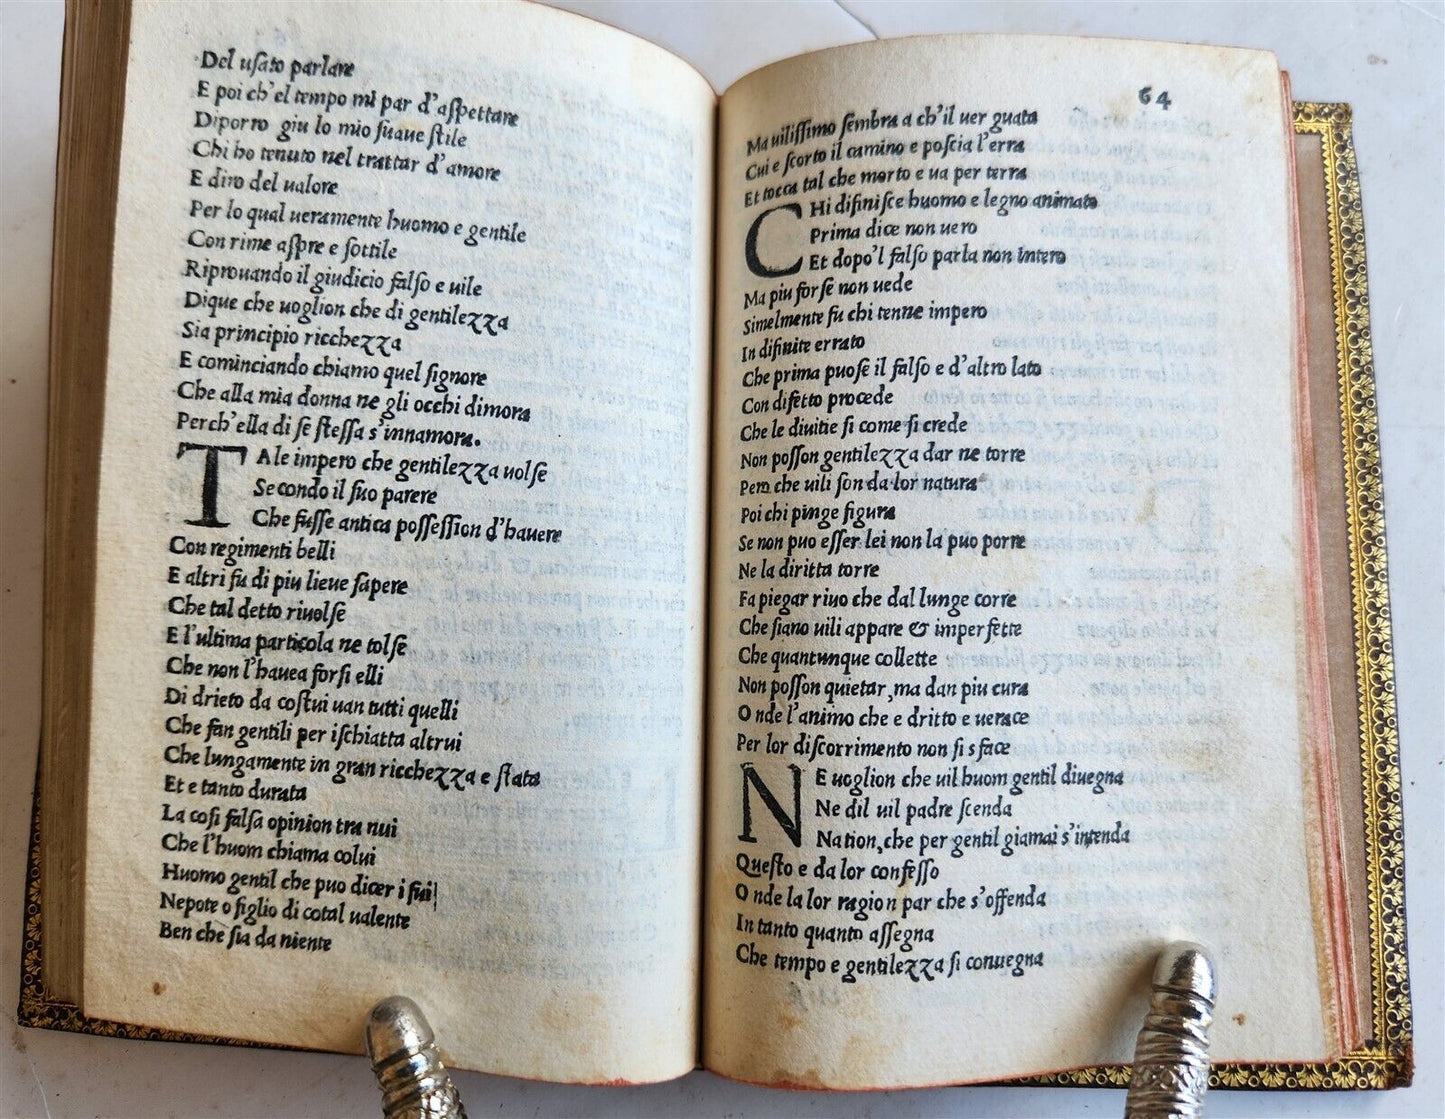 Del uſato parlare
E poi ch'el tempo mi par d'aſpettare
Diporro giu lo mio ſuaue ſtile
Chi ho tenuto nel trattar d'amore
E diro del ualore
Per lo qual ueramente huomo e gentile
Con rime aſpre e ſottile
Riprouando il giudicio falſo e uile
Dique che uoglion che di gentilezza
Sia principio ricchezza
E cominciando chiamo quel ſignore
Che alla mia donna ne gli occhi dimora
Perch'ella di ſe ſteſſa s'innamora.
TAle impero che gentilezza uolſe
Secondo il ſuo parere
Che fuſſe antica poſſeſſion d'hauere
Con regimenti belli
E altri fu di piu lieue ſapere
Che tal detto riuolſe
E l'ultima particola ne tolſe
Che non l'hauea forſi elli
Di drieto da coſtui uan tutti quelli
Che fan gentili per iſchiatta altrui
Che lungamente in gran ricchezza e ſtata
Et e tanto durata
La coſi falſa opinion tra nui
Che l'huom chiama colui
Huomo gentil che puo dicer i fui
Nepote o figlio di cotal ualente
Ben che ſia da niente
64
Ma uiliſſimo ſembra a ch'il uer guata
Cui e ſcorto il camino e poſcia l'erra
Et tocca tal che morto e ua per terra
CHi difiniſce huomo e legno animato
Prima dice non uero
Et dopo'l falſo parla non intero
Ma piu forſe non uede
Simelmente fu chi tenne impero
In difinite errato
Che prima puoſe il falſo e d'altro lato
Con difetto procede
Che le diuitie ſi come ſi crede
Non poſſon gentilezza dar ne torre
Pero che uili ſon da lor natura
Poi chi pinge figura
Se non puo eſſer lei non la puo porre
Ne la diritta torre
Fa piegar riuo che dal lunge corre
Che ſiano uili appare & imperfette
Che quantunque collette
Non poſſon quietar, ma dan piu cura
Onde l'animo che e dritto e uerace
Per lor diſcorrimento non ſi sface
NE uoglion che uil huom gentil diuegna
Ne dil uil padre ſcenda
Nation, che per gentil giamai s'intenda
Queſto e da lor confeſſo
Onde la lor ragion par che s'offenda
In tanto quanto aſſegna
Che tempo e gentilezza ſi conuegna